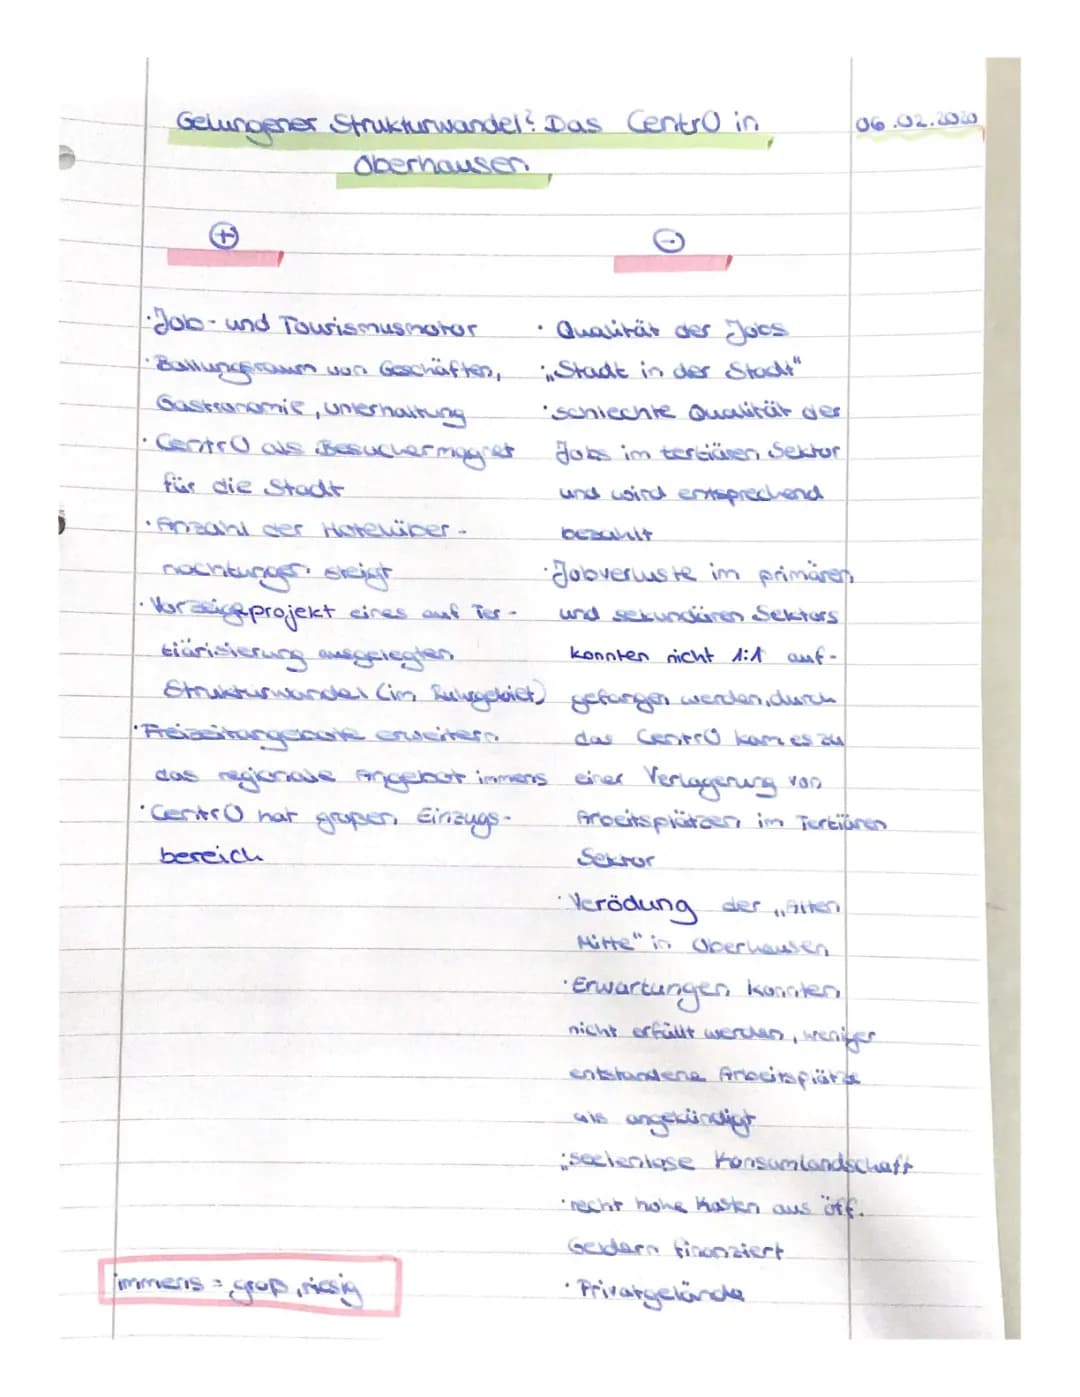 Gelungener Strukturwandel? Das CentrO in
Oberhausen
06.02.2020
+
·Job- und Tourismusmotor
·Ballungsraum von Geschäften,
Gastronomie, Unterhaltung
·CentrO als Besuchermagnet
für die Stadt
·Anzahl der Hotelüber-
nachtungen steigt
·Vorzeigeprojekt eines auf Ter-
tiärisierung ausgelegten
Strukturwandel (im Ruhrgebiet)
·Freizeitangebote erweitern
das regionale Angebot immens
·CentrO hat großen Einzugs-
bereich
immens = groß, riesig
-
·Qualität der Jobs
·„Stadt in der Stadt"
·schlechte Qualität der
Jobs im tertiären Sektor
und wird entsprechend
bezahlt
·Jobverluste im primären
und sekundären Sektors
konnten nicht 1:1 auf-
gefangen werden, durch
das CentrO kam es zu
einer Verlagerung von
Arbeitsplätzen im Tertiären
Sektor
·Verödung der „Alten
Mitte" in Oberhausen
·Erwartungen konnten
nicht erfüllt werden, weniger
entstandene Arbeitsplätze
als angekündigt
·seelenlose Konsumlandschaft
·recht hohe Kosten aus öff.
Geldern finanziert
·Privatgelände